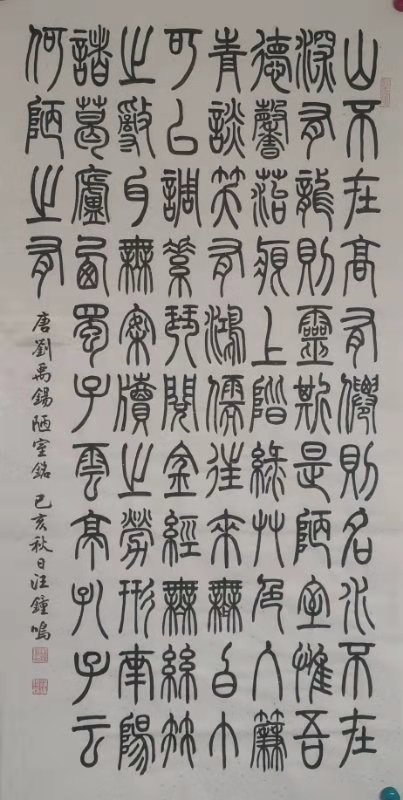 山不在高有僊則名水不在
深有龍則靈斯是陋室惟吾
德馨苔痕上階綠艸色入簾
青談笑有鴻儒往來無白丁
可以調素琴閱金經無絲竹
之亂耳無案牘之勞形南陽
諸葛廬西蜀子雲亭孔子云
何陋之有
唐劉禹錫陋室銘 己亥秋日汪鐘鳴